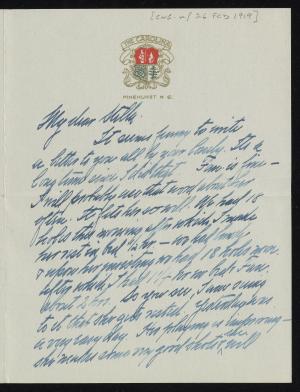 [ENC. w/ 26 FEB 1919]
THE CAROLINA
PINEHURST N.C.
My dear Stella,
It seems funny to write
a letter to you all by your lonely. It's a
long time since I did that. Fan is fine –
I will probably use that word about her
often. It fits her so well. We had 18
holes this morning after which, I made
her rest in bed ½ hr – we had lunch
& upon her finishing we had 18 holes more.
after which, I had hr for her fun.
about 2 hrs. So you see, I am seeing
to it that she gets rested. Yesterday was
a very easy day. Her playing is improving –
she makes some very good shots & will